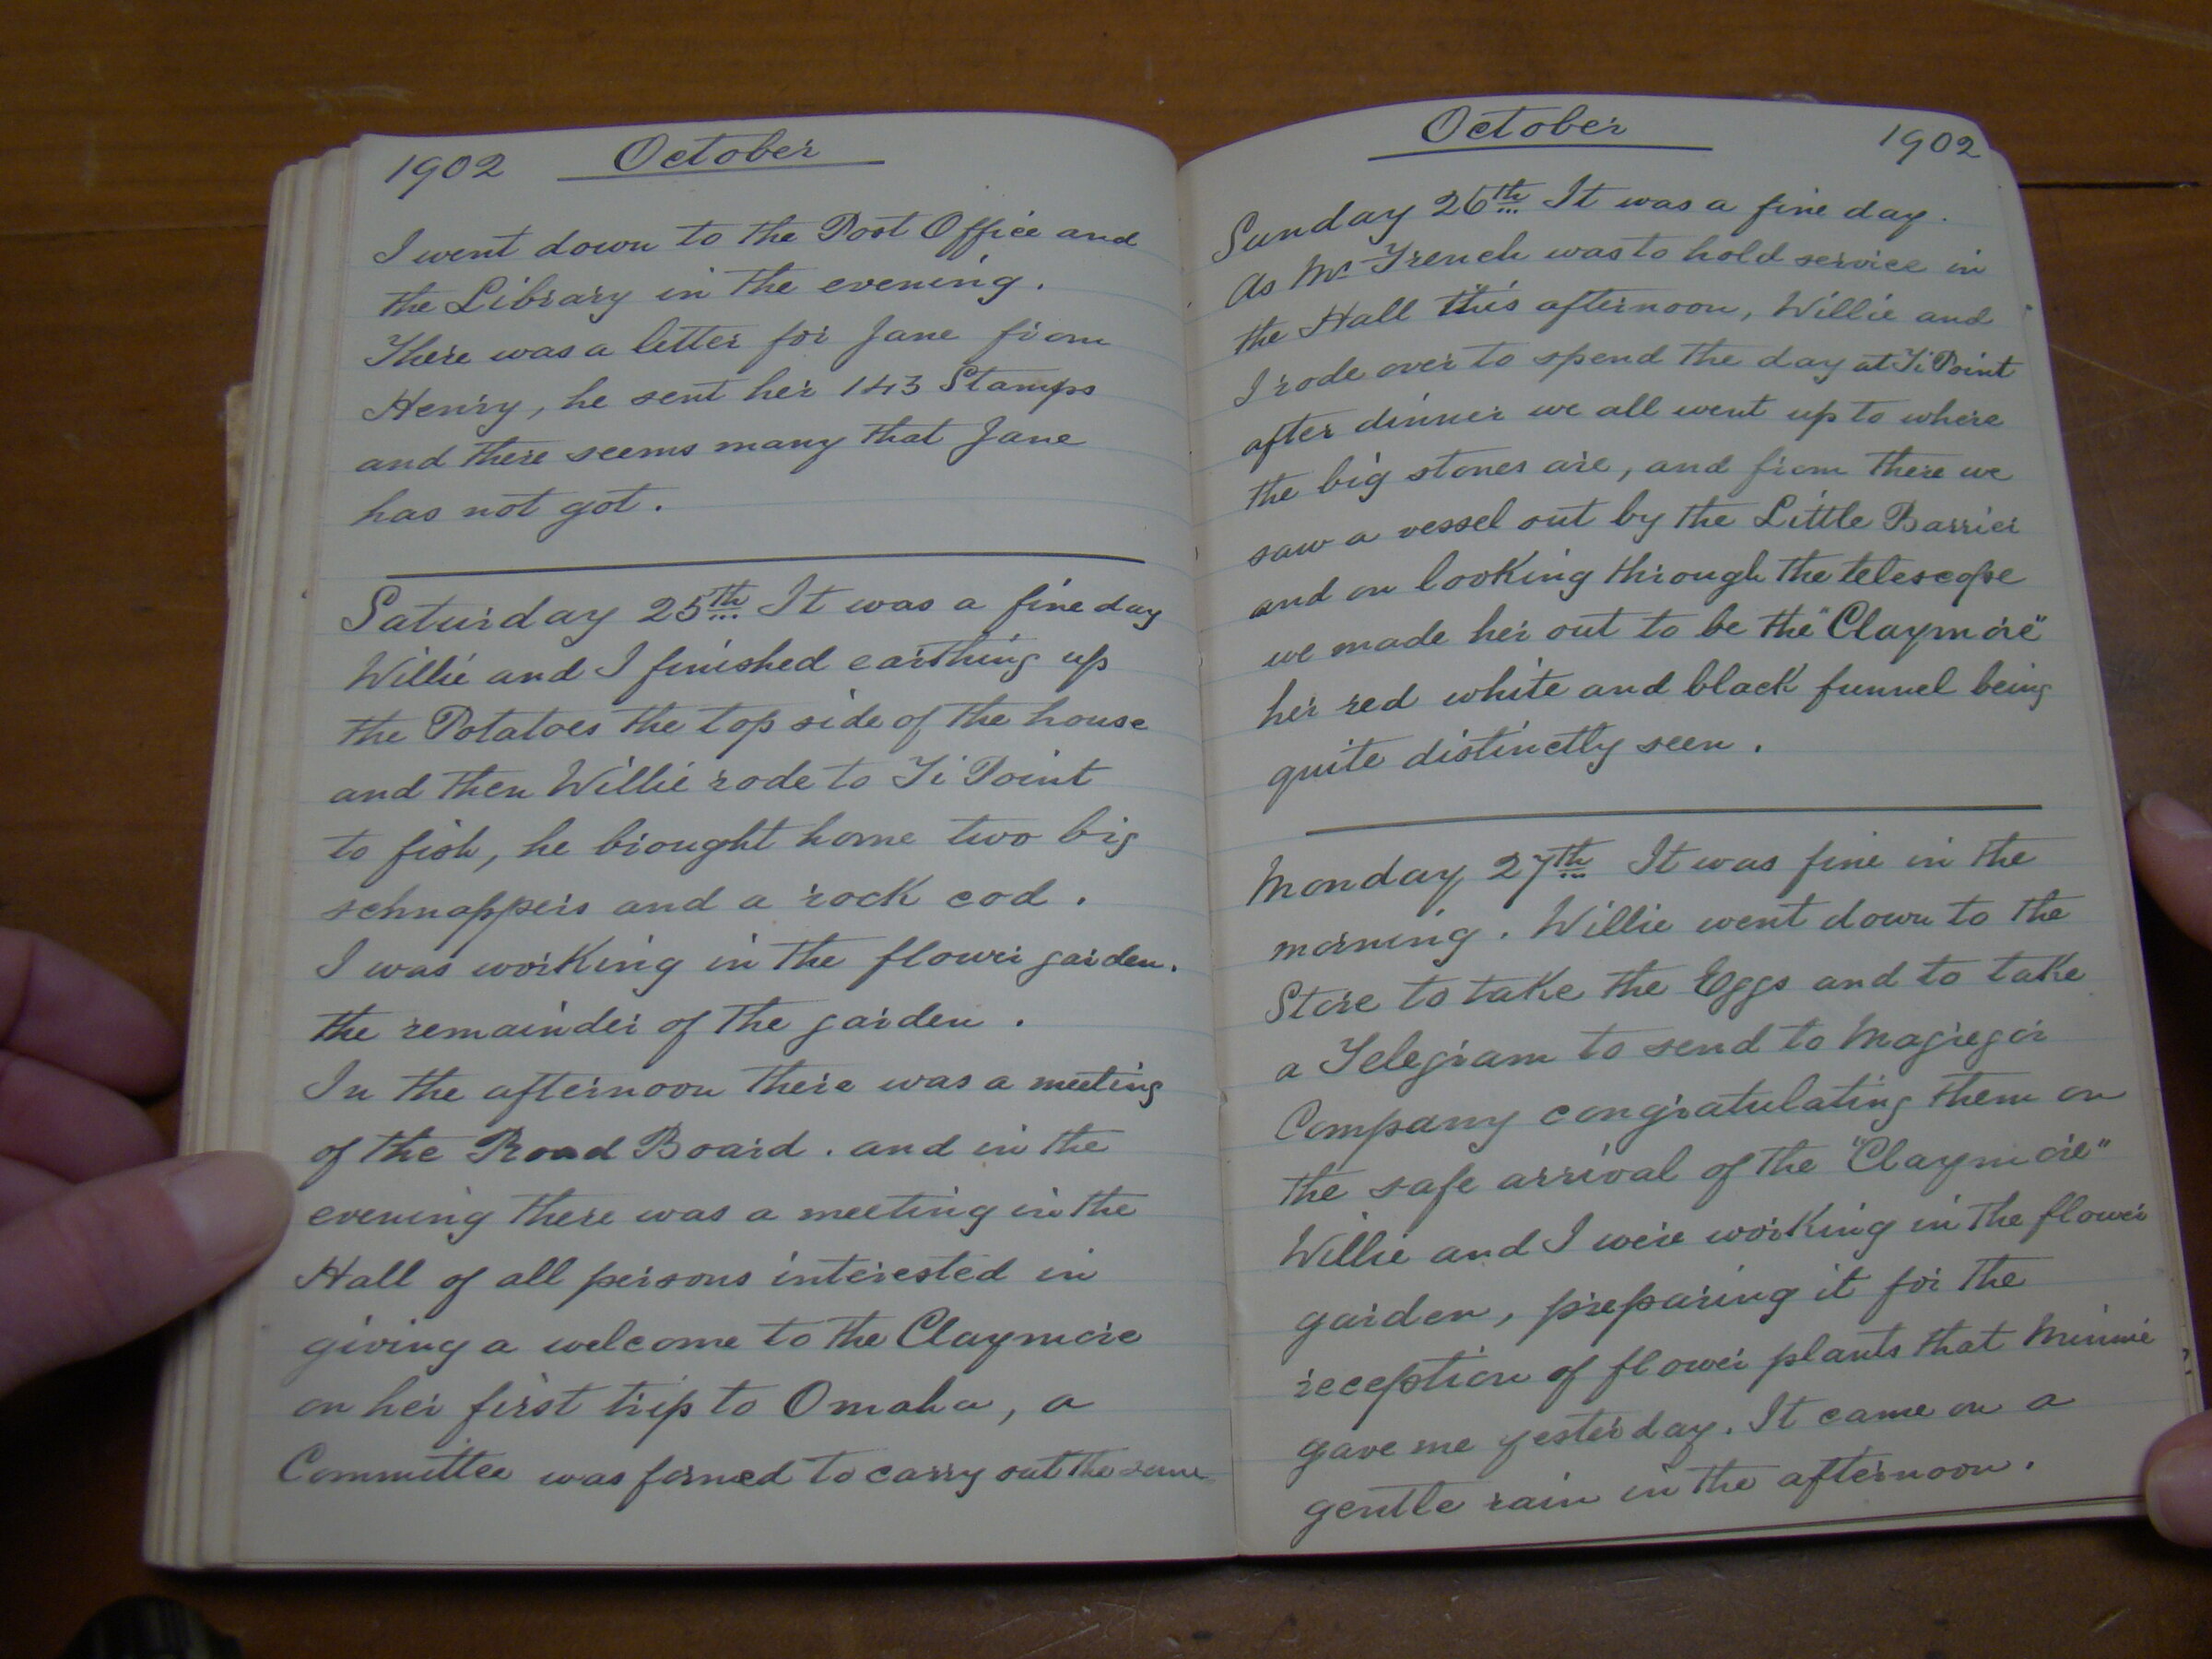 1902 October
I went down to the Post Office and
the Library in the evening.
There was a letter for Jane from
Henry, he sent her 143 Stamps
and there seems many that Jane
has not got.
Saturday 25th It was a fine day
Willie and I finished earthing up
the Potatoes the top side of the house
and then Willie rode to Ti Point
to fish, he brought home two big
schnappers and a rock cod.
I was working in the flower garden.
the remainder of the garden.
In the afternoon there was a meeting
of the Road Board. and in the
evening there was a meeting in the
Hall of all persons interested in
giving a welcome to the Claymore
on her first trip to Omaha, a
Committee was formed to carry out the same
October 1902
Sunday 26th It was a fine day.
As Mr French was to hold service in
the Hall this afternoon, Willie and
I rode over to spend the day at Ti Point
after dinner we all went up to where
the big stones are, and from there we
saw a vessel out by the Little Barrier
and on looking through the telescope
we made her out to be the "Claymore"
her red white and black funnel being
quite distinctly seen.
Monday 27th It was fine in the
morning. Willie went down to the
Store to take the Eggs and to take
a Telegram to send to Magregor
Company congratulating them on
the safe arrival of the "Claymore"
Willie and I were working in the flower
garden, preparing it for the
reception of flower plants that Minnie
gave me yesterday. It came on a
gentle rain in the afternoon.